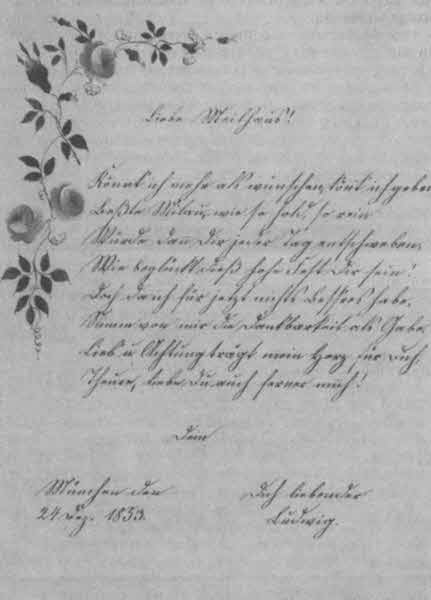 Liebe Meilhaus!
Könnt ich mehr als wünschen, könt ich geben
Beßte Milau, wie so hold, so rein
Würde dann Dir jeder Tag entschweben,
Wie beglückt dieß hohe Fest Dir sein!
Doch da ich für jetzt nichts Beßres habe,
Nimm von mir die Dankbarkeit als Gabe
Lieb u. Achtung trägt mein Herz für Dich,
Theure, liebe Du auch ferner mich!
Dein
München den
24. Dez. 1833.
Dich liebender
Ludwig.